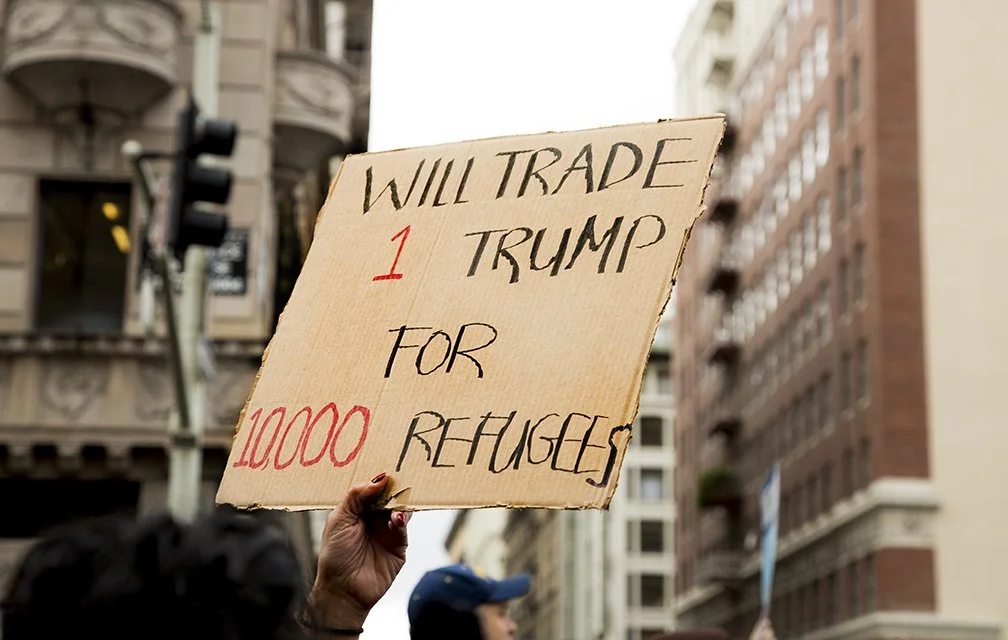 WILL TRADE
1 TRUMP
FOR
10000 REFUGEES